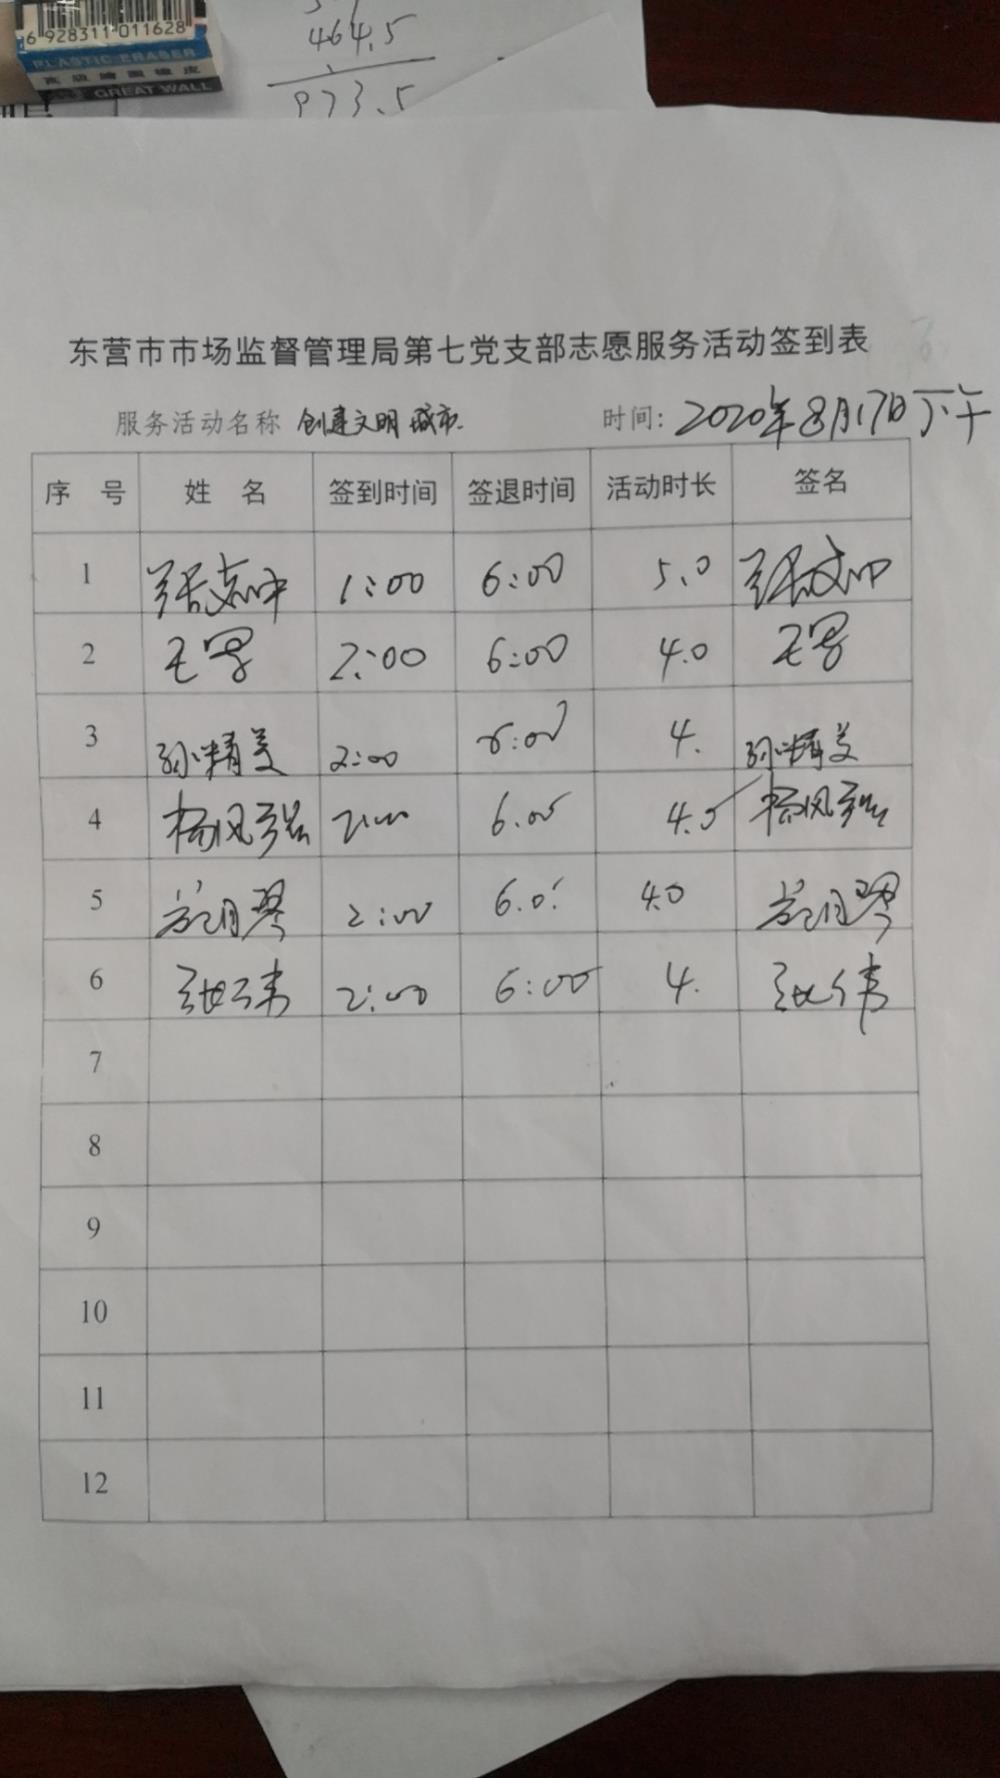 6 928311 011628
PLASTIC ERASER
高级绘图橡皮
GREAT WALL
464.5
973.5
东营市市场监督管理局第七党支部志愿服务活动签到表
服务活动名称 创建文明城市. 时间: 2020年8月17日下午
序 号 姓 名 签到时间 签退时间 活动时长 签名
1 1:00 6:00 5.0
2 2:00 6:00 4.0
3 孙精美 2:00 6:00 4. 孙精美
4 杨风强 2:00 6.00 4.0 杨风强
5 2:00 4.0
6 张伟 2:00 6:00 4. 张伟
7
8
9
10
11
12